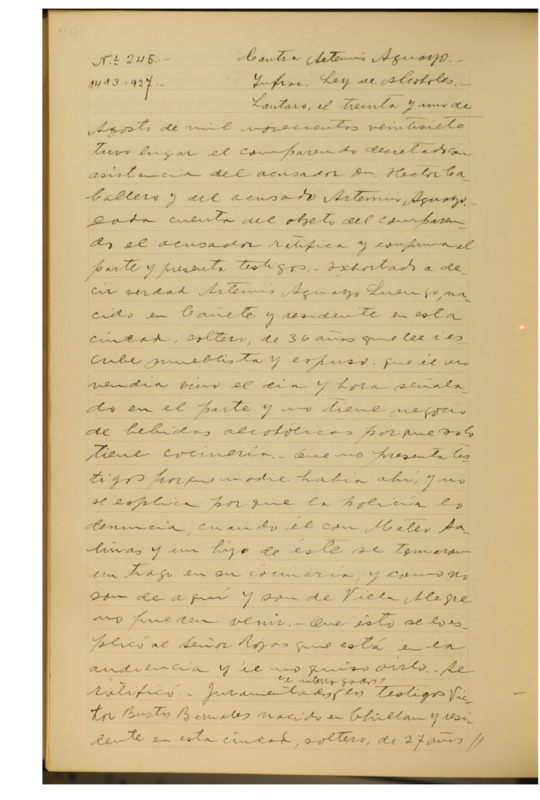 N.º 245.-
Contra Artemio Aguayo.-
1413.-927.-
Infrac. Ley de Alcoholes.-
Lautaro, el treinta y uno de
Agosto de mil novecientos veintisiete
tuvo lugar el comparendo decretado con
asistencia del acusador Dn. Hector Ca-
ballero y del acusado Artemio Aguayo.-
Dada cuenta del objeto del comparen-
do el acusador ratifica y confirma el
parte y presenta testigos.- Exhortado a de-
cir verdad Artemio Aguayo Luengo, na-
cido en Cañete y residente en esta
ciudad, soltero, de 36 años que lee i es-
cribe mueblista y expuso: que él no
vendia vino el dia y hora señala-
do en el parte y no tiene negocio
de bebidas alcohólicas porque solo
tiene cocineria.- Que no presenta tes-
tigos porque nadie habia ahí, y no
se esplica porque la policía lo
denuncia, cuando él con Mateo Sa-
linas y un hijo de éste se tomaron
un trago en su cocineria, y como no
son de aquí y son de Villa Alegre
no pueden venir.- Que ésto se lo es-
plicó al señor Rojas que está en la
audiencia y él no quiso oirlo.- Se
ratificó.- Juramentados e interrogados los testigos Vic-
tor Bustos Bernales nacido en Chillan y resi
dente en esta ciudad, soltero, de 27 años //